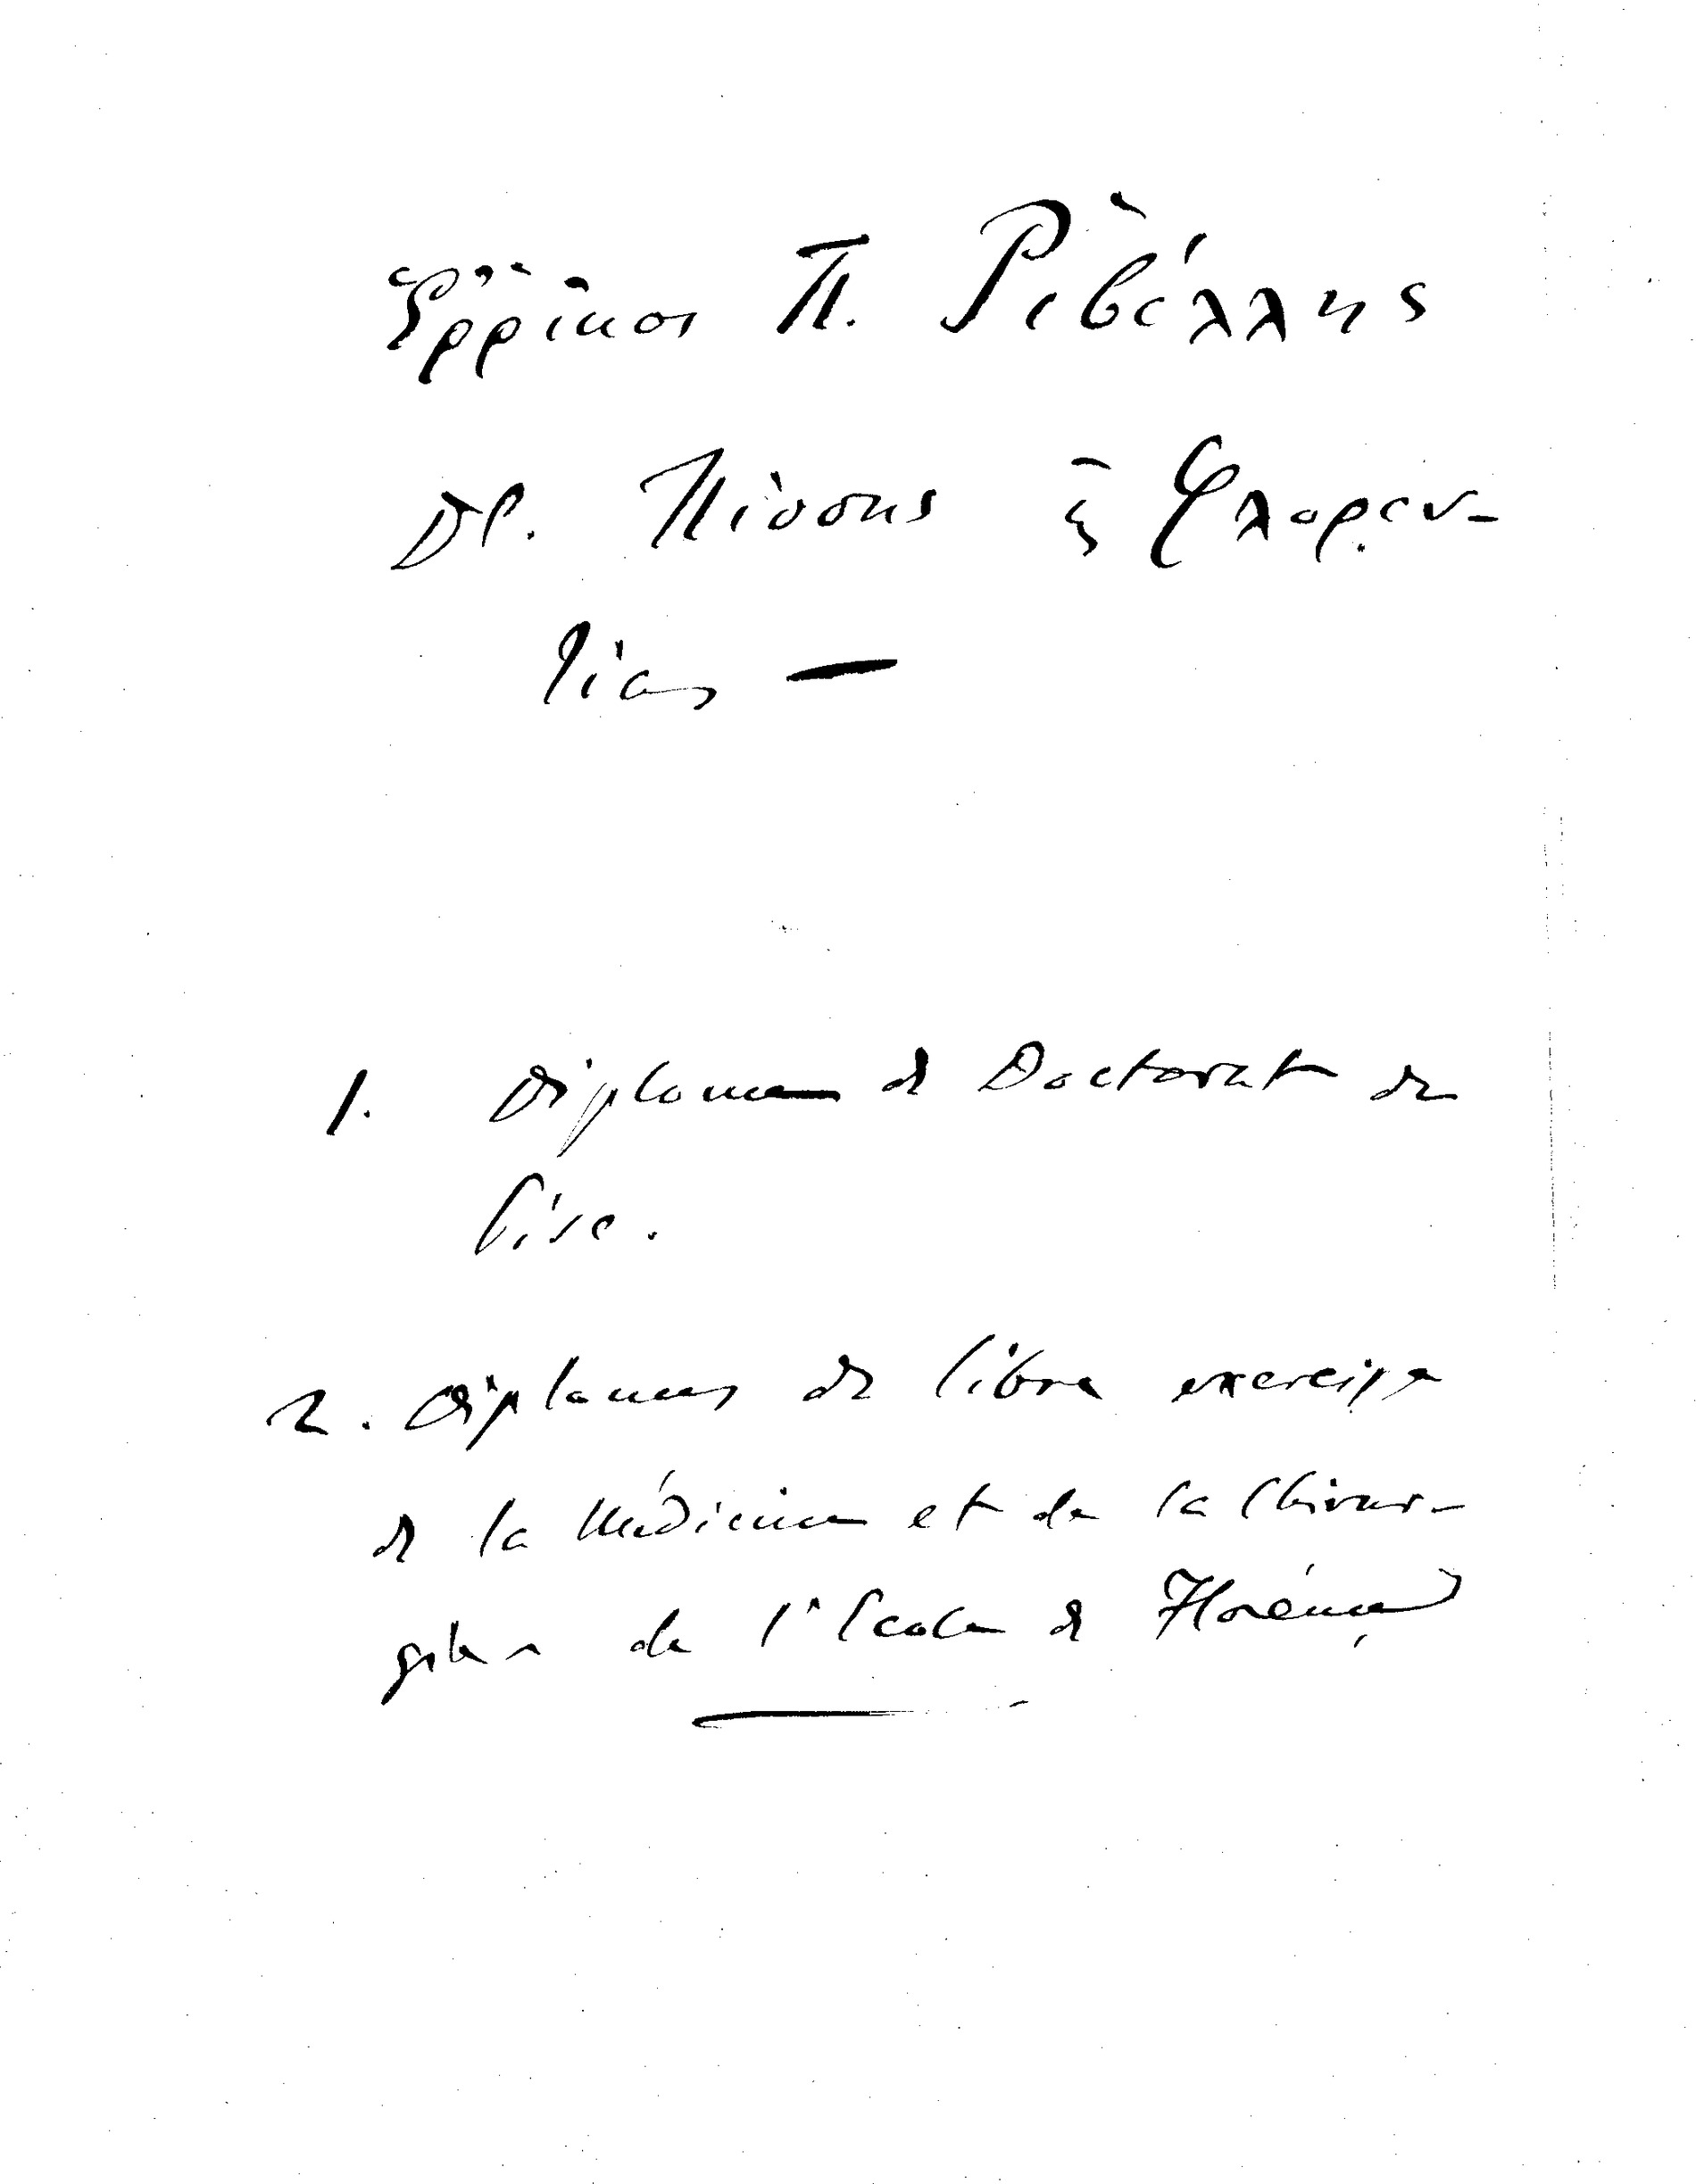 Ἑρρῖκος Π. Ῥιβέλλης
Δρ. Πίσσης ἢ Φλορεν-
τίας —
1. Diplome de Doctorat de
Pise.
2. Diplomes de libre exercise
de la Médicine et de la Chirur-
de l'Ecole de Florence